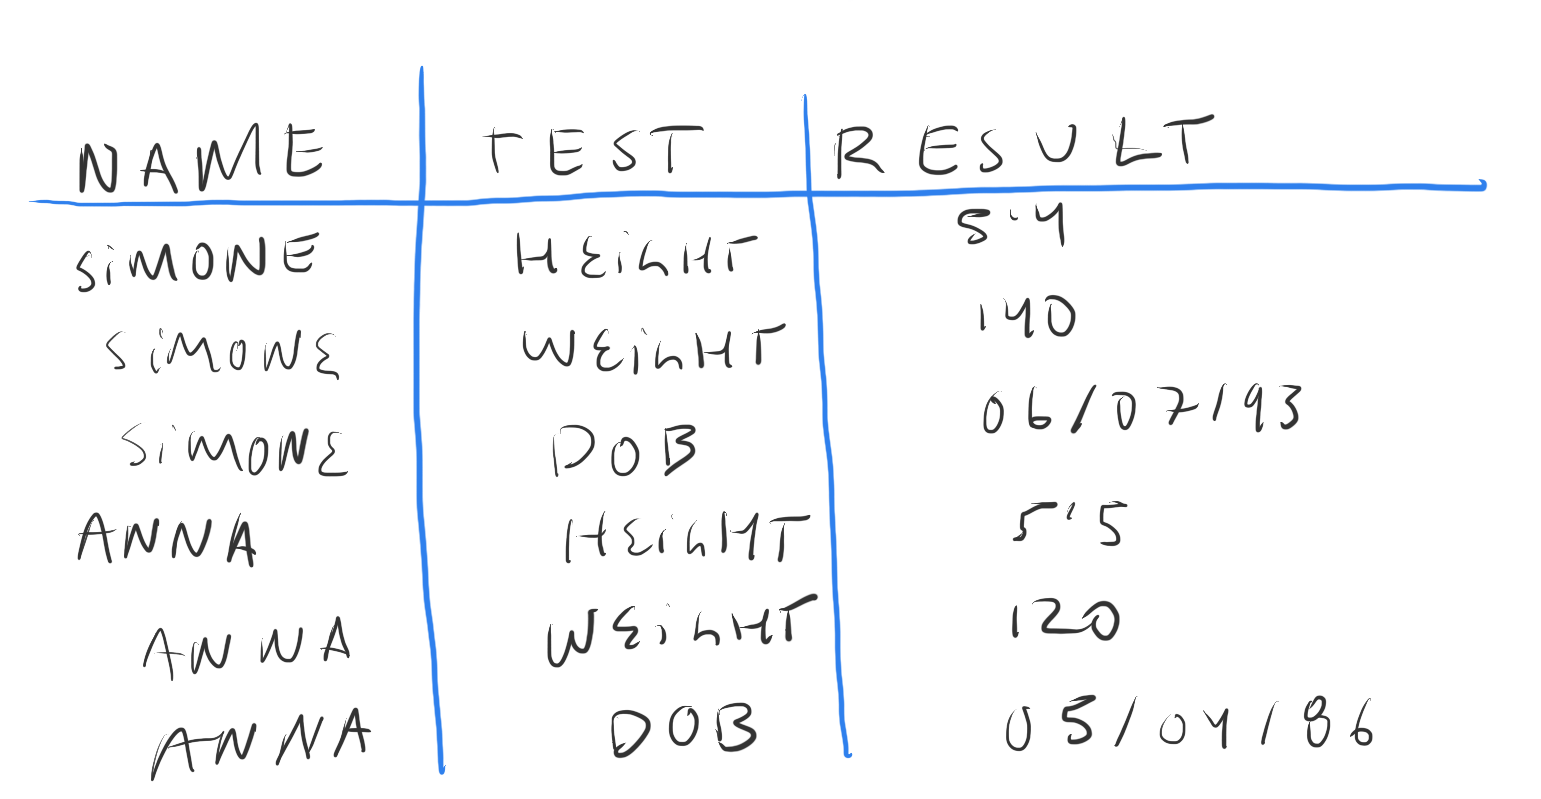 NAME TEST RESULT
SiMONE HEiGHT 5'4
SiMONE WEiGHT 140
SiMONE DOB 06/07/93
ANNA HEiGHT 5'5
ANNA WEiGHT 120
ANNA DOB 05/04/86